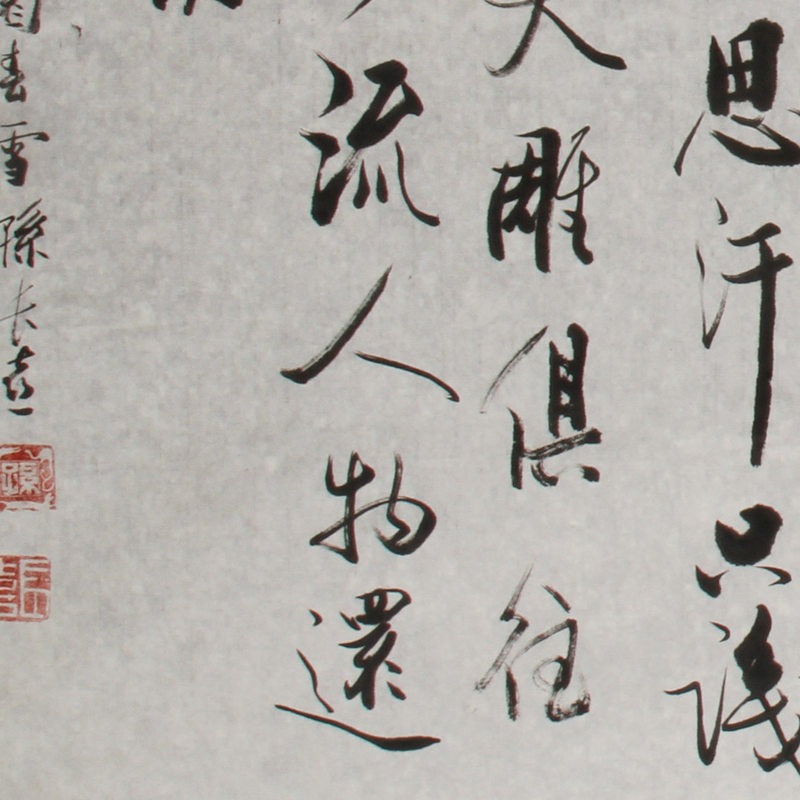 思汗只識
大雕俱往
流人物還
春雪孫长喜